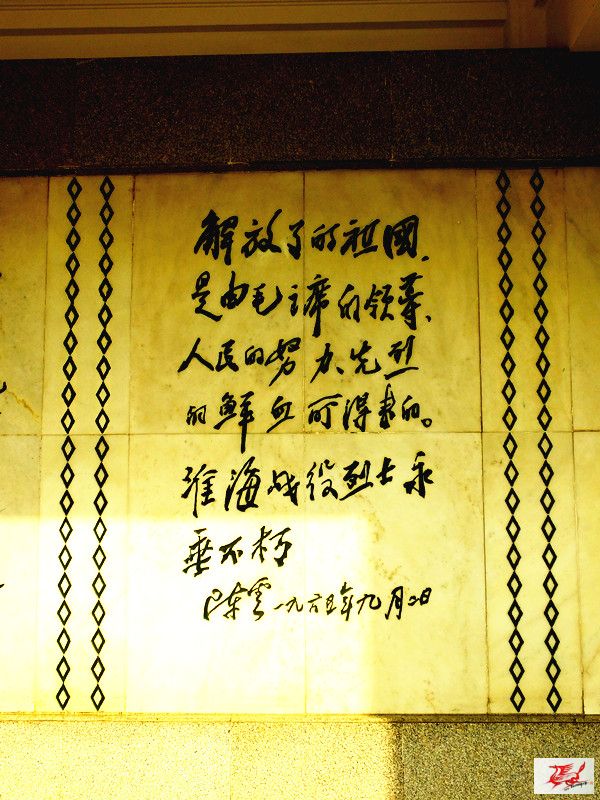 解放了的祖國，
是由毛主席的领导、
人民的努力、先烈
的鲜血所得来的。
淮海战役烈士永
垂不朽
陈云 一九六五年九月二日